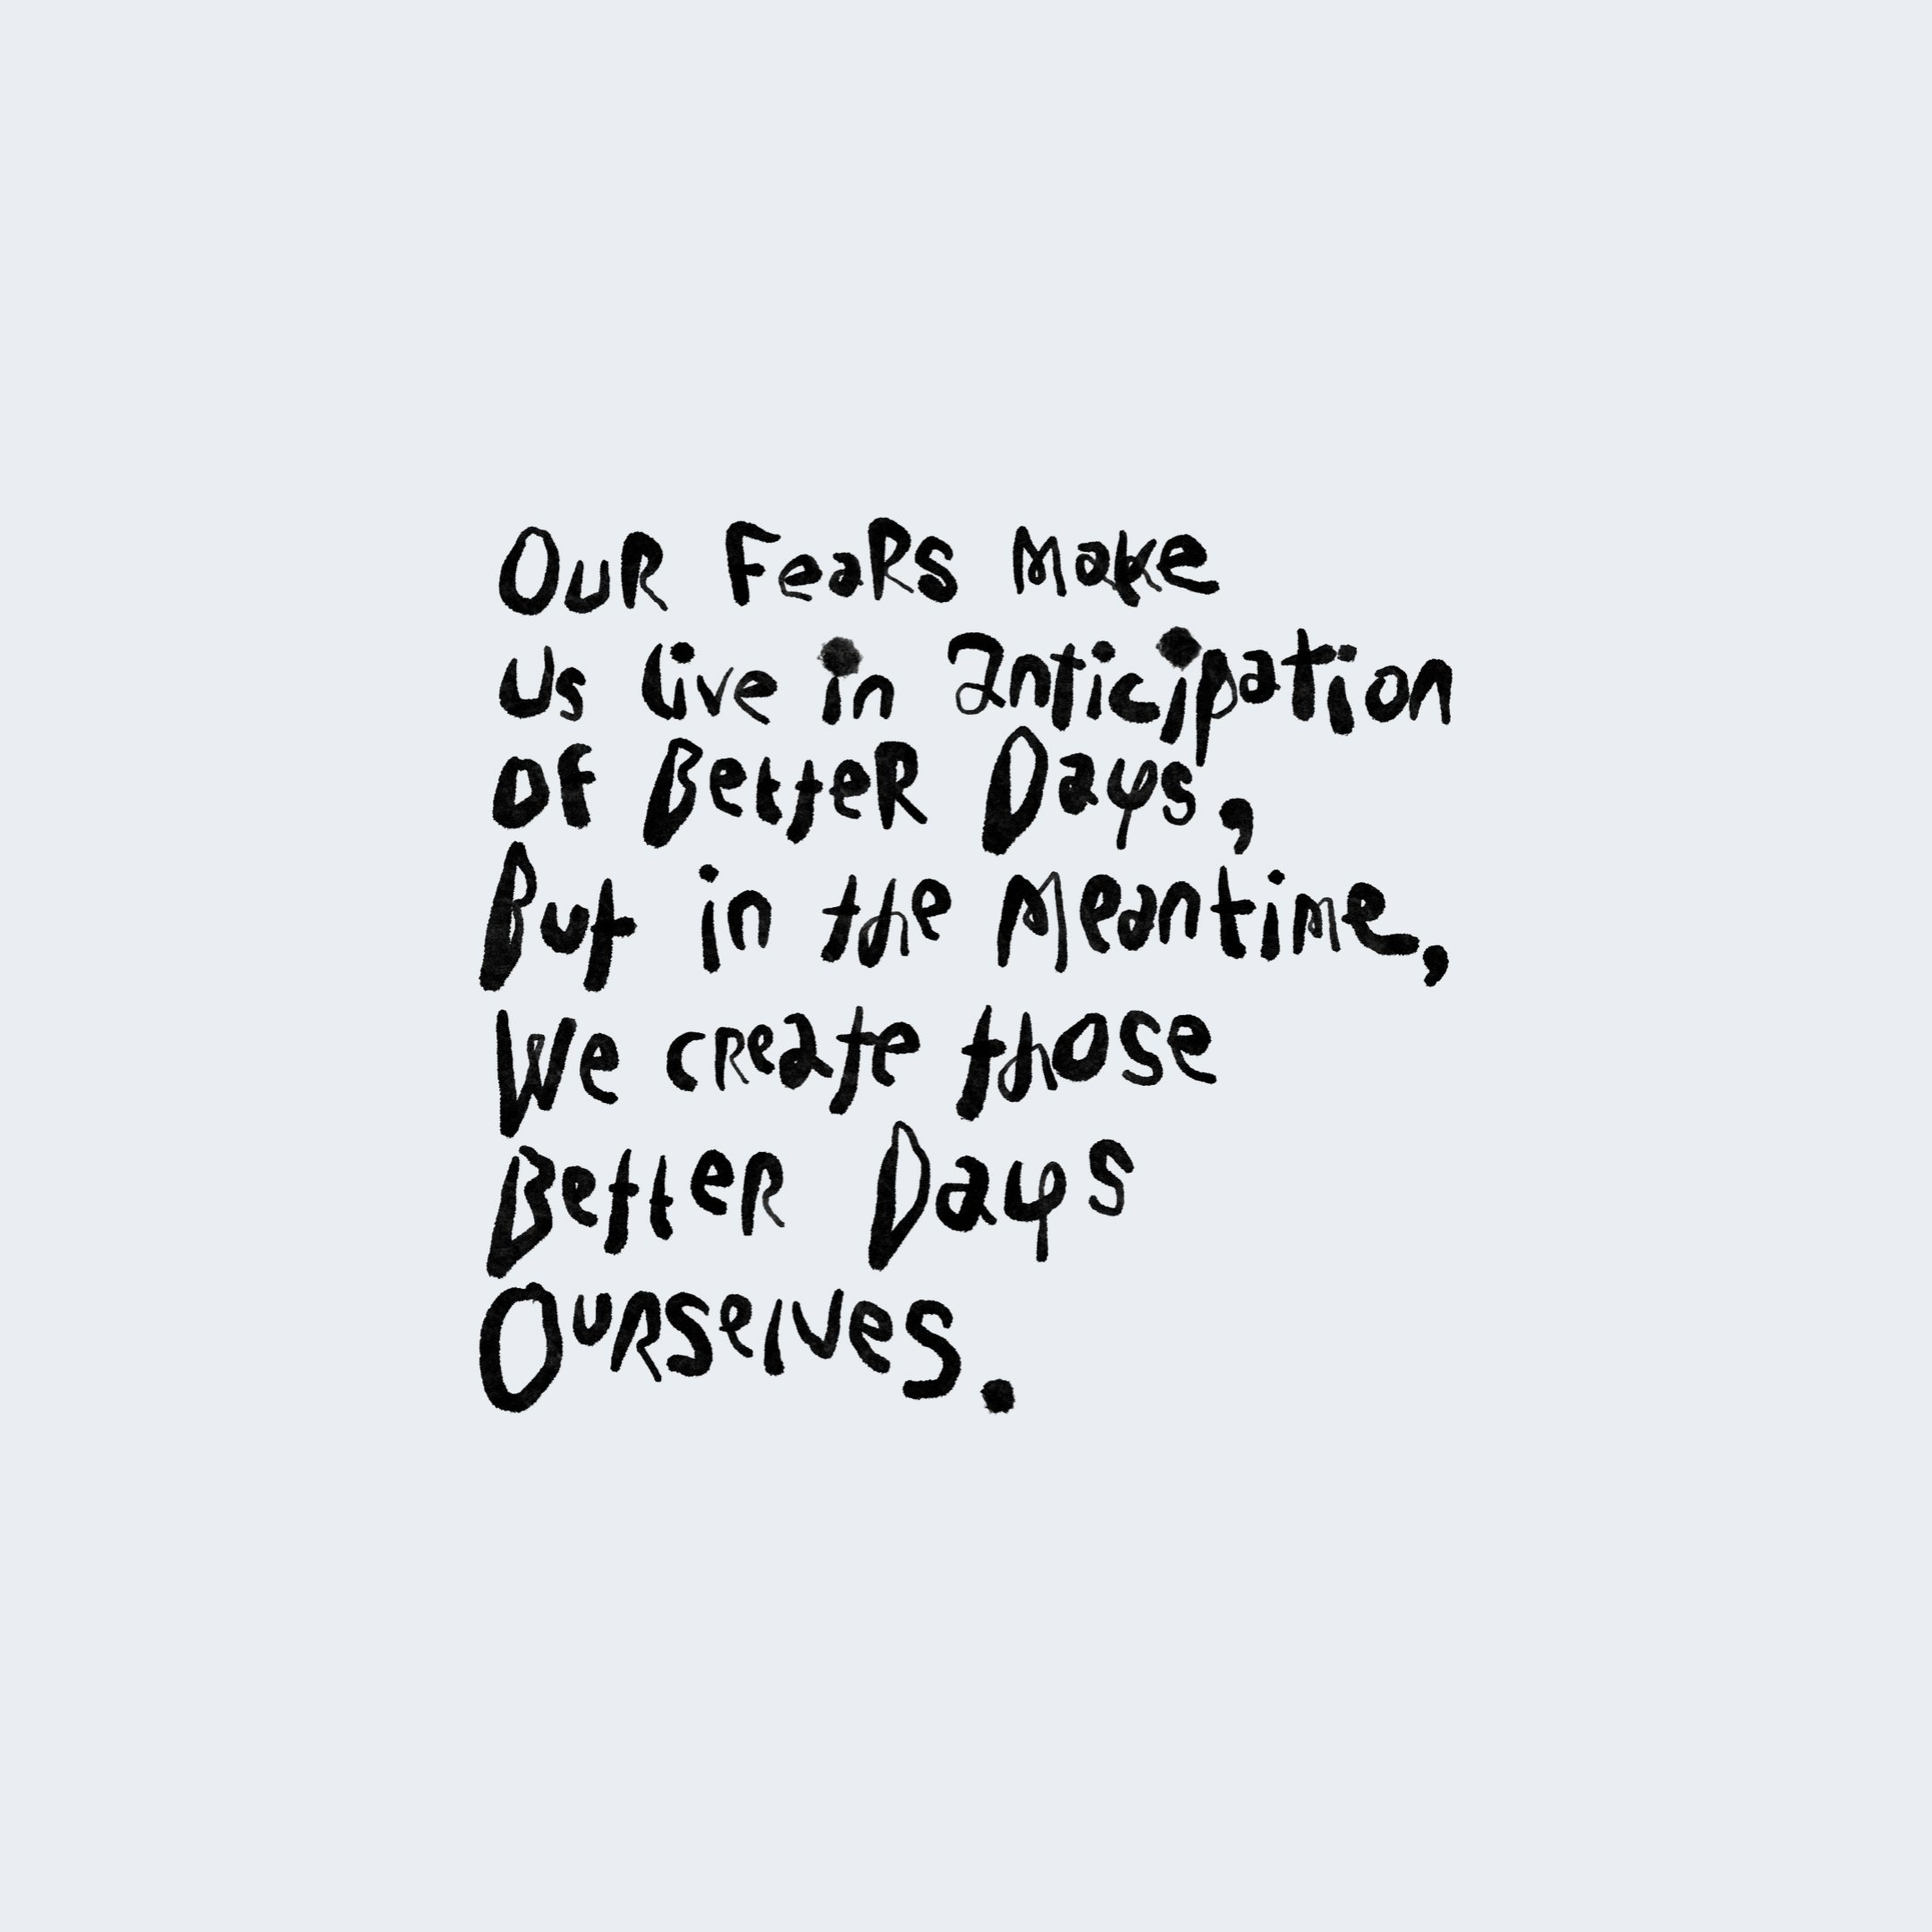 Our Fears make
us live in anticipation
of Better Days,
But in the Meantime,
We create those
Better Days
Ourselves.